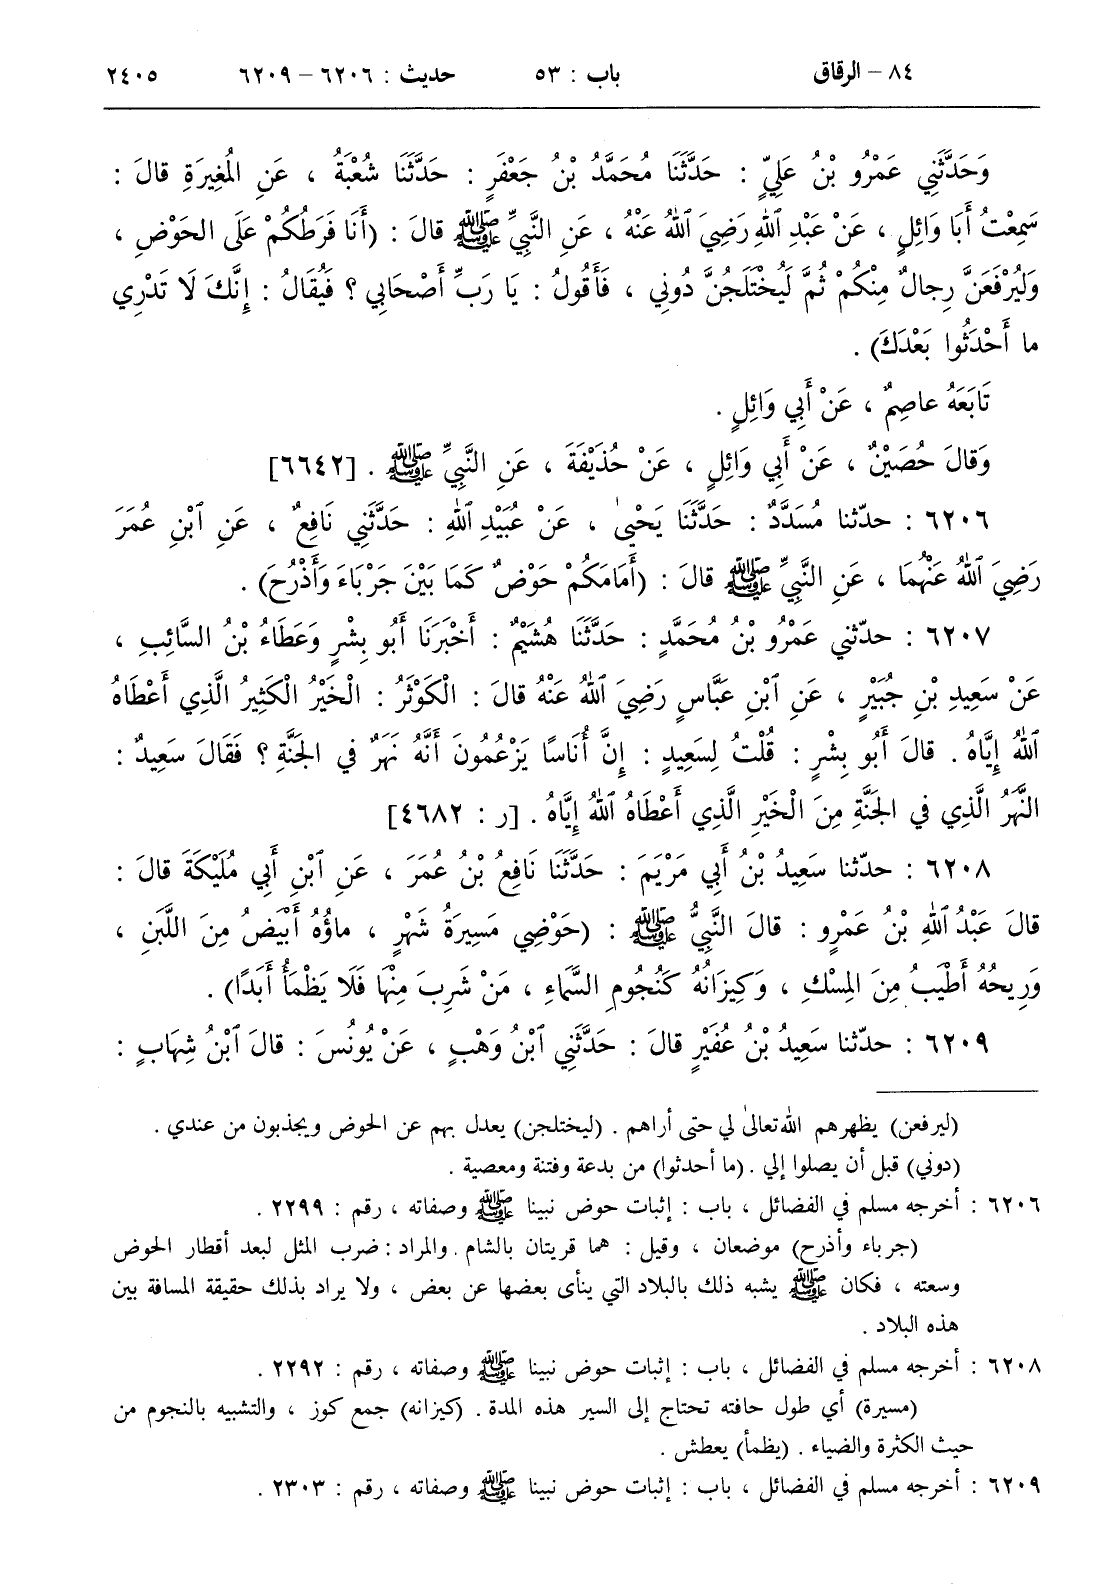 ٨٤ - الرقاق باب : ٥٣ حديث : ٦٢٠٦ - ٦٢٠٩ ٢٤٠٥
وَحَدَّثَنِي عَمْرُو بْنُ عَلِيٍّ : حَدَّثَنَا مُحَمَّدُ بْنُ جَعْفَرٍ : حَدَّثَنَا شُعْبَةُ ، عَنِ المُغِيرَةِ قالَ :
سَمِعْتُ أَبَا وَائِلٍ ، عَنْ عَبْدِ ٱللهِ رَضِيَ ٱللهُ عَنْهُ ، عَنِ النَّبِيِّ ﷺ قالَ : (أَنَا فَرَطُكُمْ عَلَى الحَوْضِ ،
وَلَيُرْفَعَنَّ رِجالٌ مِنْكُمْ ثُمَّ لَيُخْتَلَجُنَّ دُونِي ، فَأَقُولُ : يَا رَبِّ أَصْحَابِي ؟ فَيُقَالُ : إِنَّكَ لَا تَدْرِي
ما أَحْدَثُوا بَعْدَكَ) .
تَابَعَهُ عاصِمٌ ، عَنْ أَبِي وَائِلٍ .
وَقالَ حُصَيْنٌ ، عَنْ أَبِي وَائِلٍ ، عَنْ حُذَيْفَةَ ، عَنِ النَّبِيِّ ﷺ . [٦٦٤٢]
٦٢٠٦ : حدّثنا مُسَدَّدٌ : حَدَّثَنَا يَحْيىٰ ، عَنْ عُبَيْدِ ٱللهِ : حَدَّثَنِي نَافِعٌ ، عَنِ ٱبْنِ عُمَرَ
رَضِيَ ٱللهُ عَنْهُمَا ، عَنِ النَّبِيِّ ﷺ قالَ : (أَمَامَكُمْ حَوْضٌ كَمَا بَيْنَ جَرْبَاءَ وَأَذْرُحَ) .
٦٢٠٧ : حدّثني عَمْرُو بْنُ مُحَمَّدٍ : حَدَّثَنَا هُشَيْمٌ : أَخْبَرَنَا أَبُو بِشْرٍ وَعَطَاءُ بْنُ السَّائِبِ ،
عَنْ سَعِيدِ بْنِ جُبَيْرٍ ، عَنِ ٱبْنِ عَبَّاسٍ رَضِيَ ٱللهُ عَنْهُ قالَ : الْكَوْثَرُ : الْخَيْرُ الْكَثِيرُ الَّذِي أَعْطَاهُ
ٱللهُ إِيَّاهُ . قالَ أَبُو بِشْرٍ : قُلْتُ لِسَعِيدٍ : إِنَّ أُنَاسًا يَزْعُمُونَ أَنَّهُ نَهَرٌ في الجَنَّةِ ؟ فَقَالَ سَعِيدٌ :
النَّهَرُ الَّذِي في الجَنَّةِ مِنَ الْخَيْرِ الَّذِي أَعْطَاهُ ٱللهُ إِيَّاهُ . [ر : ٤٦٨٢]
٦٢٠٨ : حدّثنا سَعِيدُ بْنُ أَبِي مَرْيَمَ : حَدَّثَنَا نَافِعُ بْنُ عُمَرَ ، عَنِ ٱبْنِ أَبِي مُلَيْكَةَ قالَ :
قالَ عَبْدُ ٱللهِ بْنُ عَمْرٍو : قالَ النَّبِيُّ ﷺ : (حَوْضِي مَسِيرَةُ شَهْرٍ ، ماؤُهُ أَبْيَضُ مِنَ اللَّبَنِ ،
وَرِيحُهُ أَطْيَبُ مِنَ المِسْكِ ، وَكِيزَانُهُ كَنُجُومِ السَّمَاءِ ، مَنْ شَرِبَ مِنْهَا فَلَا يَظْمَأُ أَبَدًا) .
٦٢٠٩ : حدّثنا سَعِيدُ بْنُ عُفَيْرٍ قالَ : حَدَّثَنِي ٱبْنُ وَهْبٍ ، عَنْ يُونُسَ : قالَ ٱبْنُ شِهَابٍ :
(ليرفعن) يظهرهم الله تعالىٰ لي حتى أراهم . (ليختلجن) يعدل بهم عن الحوض ويجذبون من عندي .
(دوني) قبل أن يصلوا إلي . (ما أحدثوا) من بدعة وفتنة ومعصية .
٦٢٠٦ : أخرجه مسلم في الفضائل ، باب : إثبات حوض نبينا ﷺ وصفاته ، رقم : ٢٢٩٩ .
(جرباء وأذرح) موضعان ، وقيل : هما قريتان بالشام . والمراد : ضرب المثل لبعد أقطار الحوض
وسعته ، فكان ﷺ يشبه ذلك بالبلاد التي ينأى بعضها عن بعض ، ولا يراد بذلك حقيقة المسافة بين
هذه البلاد .
٦٢٠٨ : أخرجه مسلم في الفضائل ، باب : إثبات حوض نبينا ﷺ وصفاته ، رقم : ٢٢٩٢ .
(مسيرة) أي طول حافته تحتاج إلى السير هذه المدة . (كيزانه) جمع كوز ، والتشبيه بالنجوم من
حيث الكثرة والضياء . (يظمأ) يعطش .
٦٢٠٩ : أخرجه مسلم في الفضائل ، باب : إثبات حوض نبينا ﷺ وصفاته ، رقم : ٢٣٠٣ .